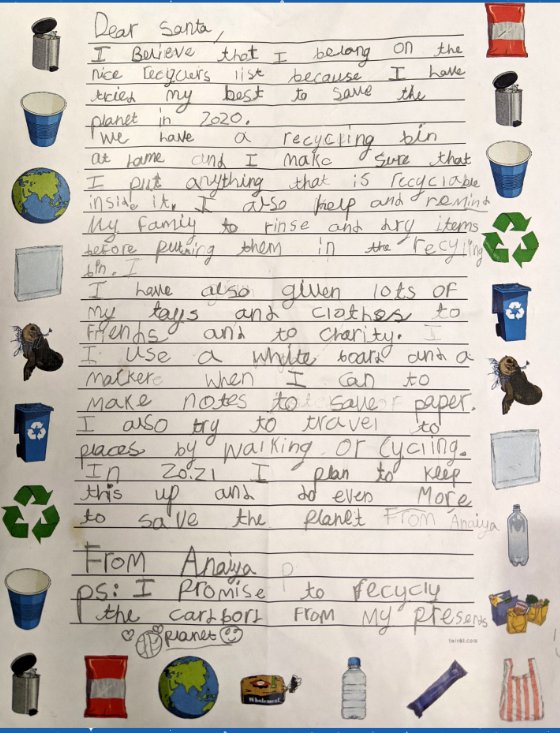 Dear Santa,
I Believe that I belong on the
nice recyclers list because I have
tried my best to save the
planet in 2020.
We have a recycling bin
at home and I make sure that
I put anything that is recyclable
inside it. I also help and remind
My family to rinse and dry items
before putting them in the recycling
bin. I
I have also given lots of
my toys and clothes to
Friends and to charity. I
I use a white board and a
marker when I can to
make notes to save paper.
I also try to travel to
places by walking or Cycling.
In 2021 I plan to keep
this up and do even More
to save the planet From Anaiya
From Anaiya
ps: I Promise to recycly
the carlborl From My Presents
planet
twinkl.com